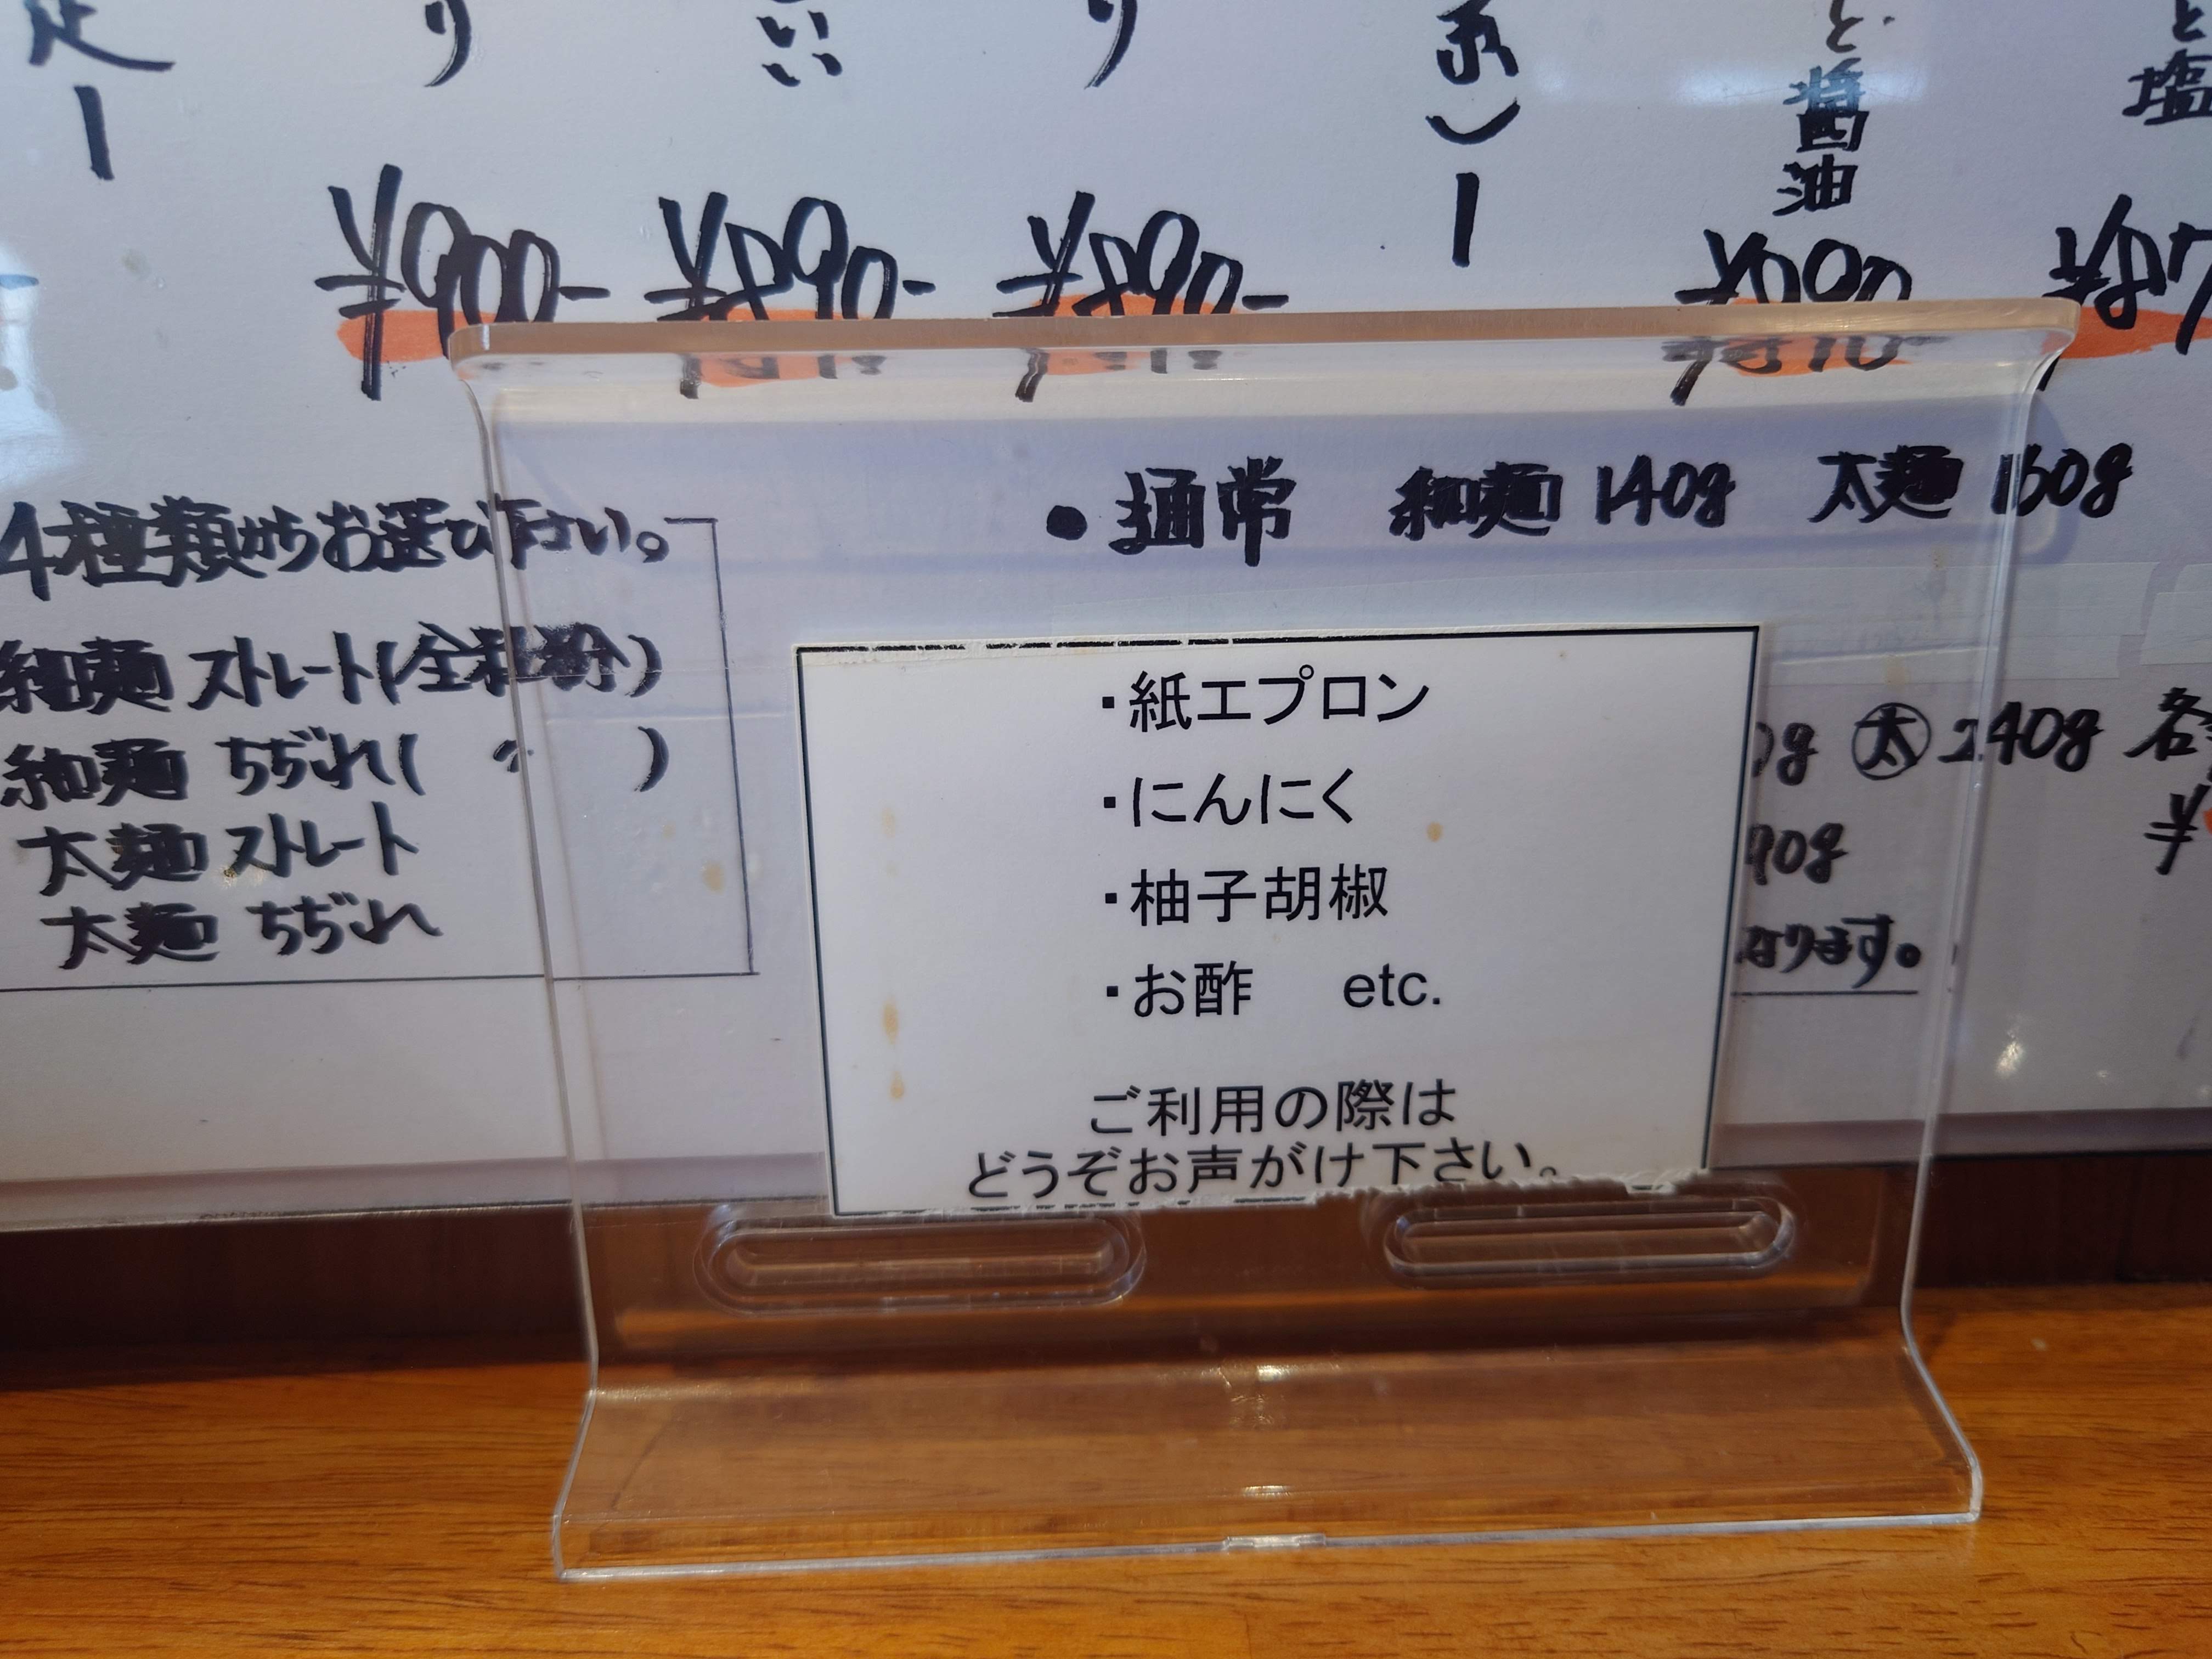 り
い
り
と醤油
と塩
¥900-
¥890-
¥890-
4種類からお選び下さい。
細麺 ストレート(全粒粉)
細麺 ちぢれ( 〃 )
太麺 ストレート
太麺 ちぢれ
・通常 細麺 140g 太麺 160g
0g 太 240g 各
90g
¥
なります。
・紙エプロン
・にんにく
・柚子胡椒
・お酢 etc.
ご利用の際は
どうぞお声がけ下さい。